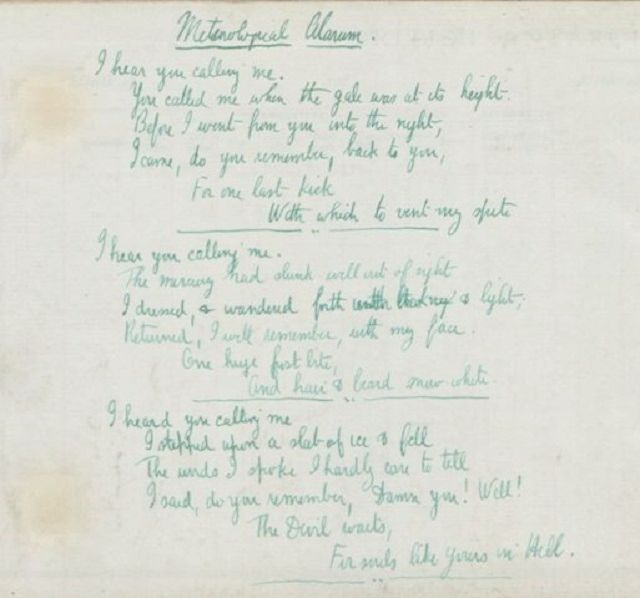 Meteorological Alarum.
I hear you calling me.
You called me when the gale was at its height.
Before I went from you into the night,
I came, do you remember, back to you,
For one last kick
With which to vent my spite
I hear you calling me.
The mercury had slunk well out of sight
I dressed, & wandered forth & light;
Returned, I well remember, with my face.
One huge frost bite,
And hair & beard snow white.
I heard you calling me
I stepped upon a slab of ice & fell
The words I spoke I hardly care to tell
I said, do you remember, Damn you! Well!
The Devil waits,
For souls like yours in Hell.